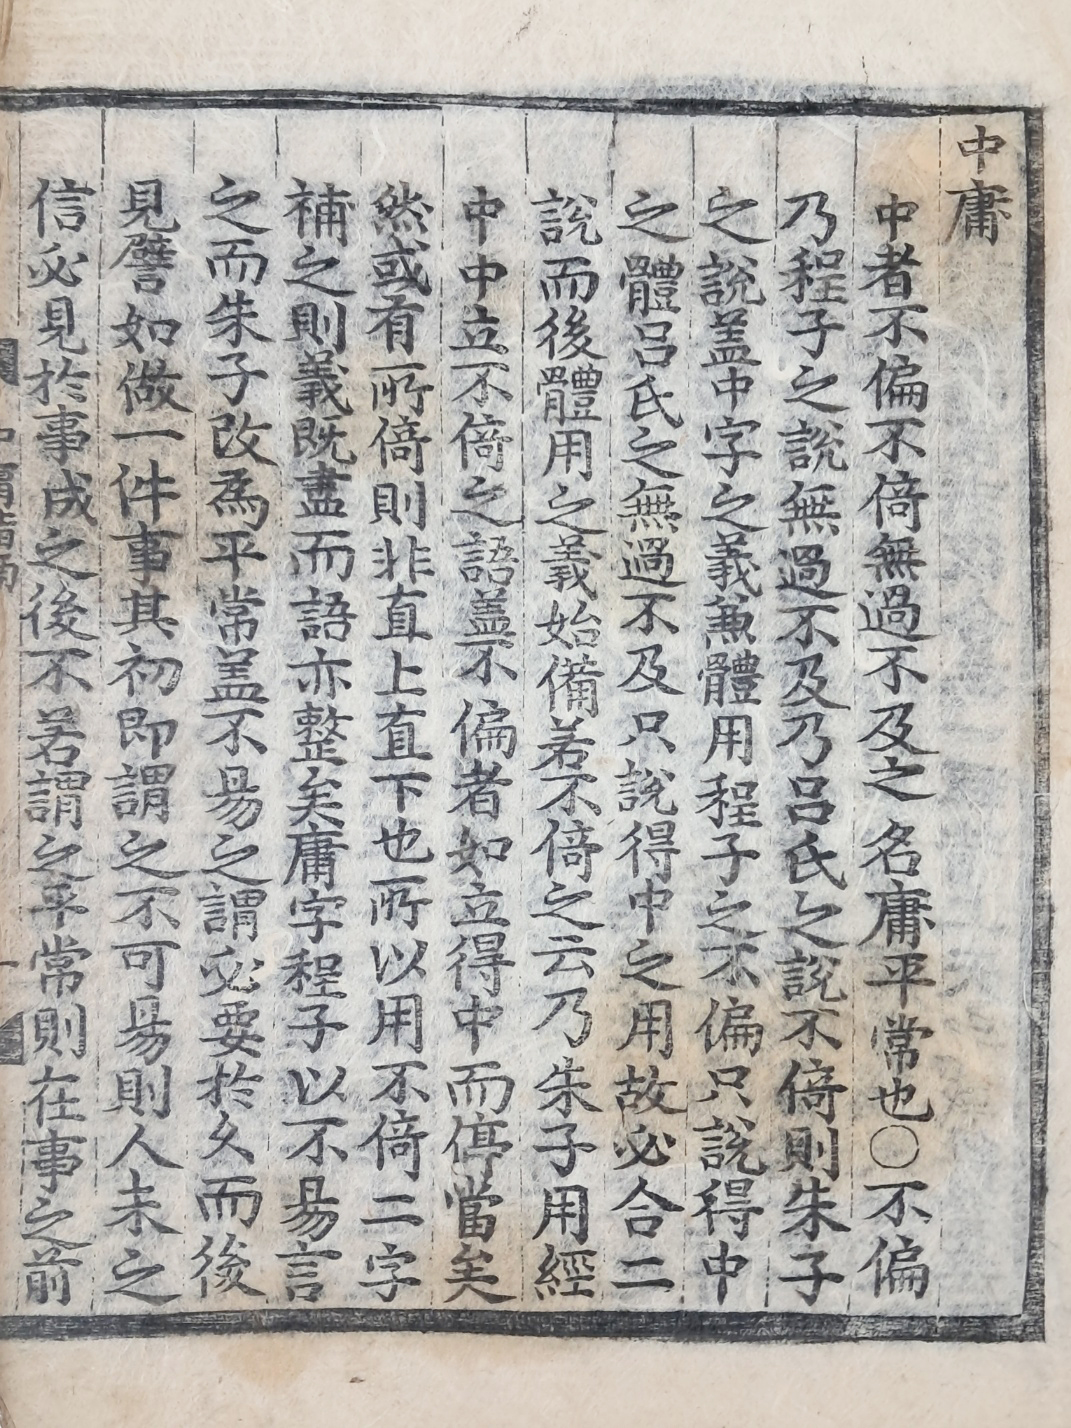 中庸
中者不偏不倚無過不及之名庸平常也○不偏
乃程子之說無過不及乃呂氏之說不倚則朱子
之說盖中字之義兼體用程子之不偏只說得中
之體呂氏之無過不及只說得中之用故必合二
說而後體用之義始備若不倚之云乃朱子用經
中中立不倚之語盖不偏者如立得中而停當矣
然或有所倚則非直上直下也所以用不倚二字
補之則義旣盡而語亦整矣庸字程子以不易言
之而朱子改爲平常盖不易之謂必要於久而後
見譬如做一件事其初即謂之不可易則人未之
信必見於事成之後不若謂之平常則在事之前